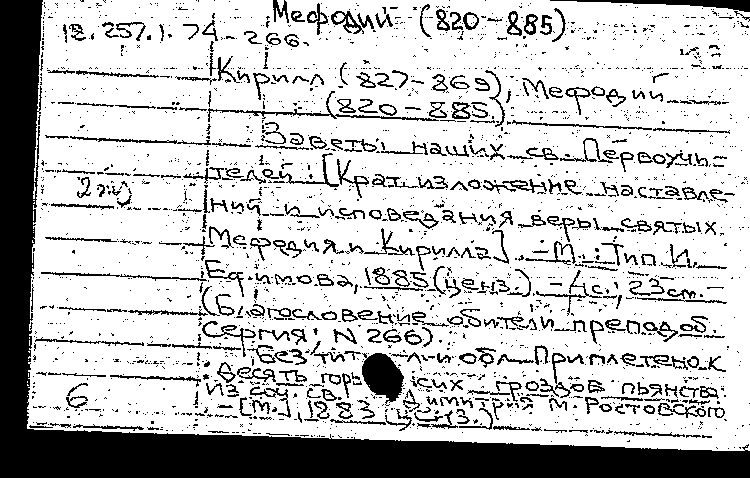 Мефодий (820-885)
18.257.1.74-266.
Кирилл (827-869), Мефодий
(820-885)
Заветы наших св. Первоучи-
телей: [Крат. изложение наставле-
2 экз
ний и исповедания веры святых
Мефодия и Кирилла]. - М.: Тип. И.
Ефимова, 1885 (ценз.). - 4с.; 23см. -
(Благословение обители преподоб.
Сергия; N 266).
Без тит. л. и обл. Приплетено к
: Десять горь ких гроздов пьянства:
Из соч. св. Димитрия М. Ростовского
. - [М.], 1883 (ценз.)
6